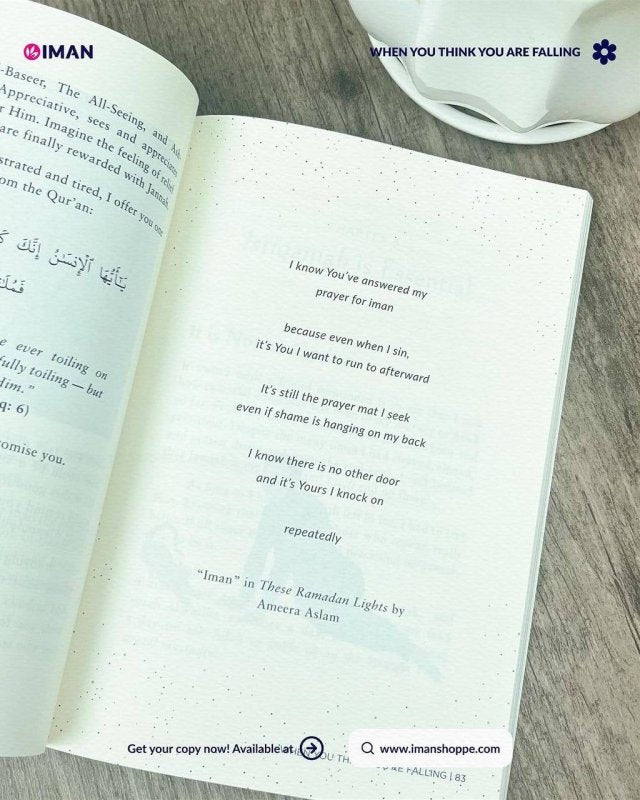 IMAN
WHEN YOU THINK YOU ARE FALLING
-Baseer, The All-Seeing, and Ash-
Appreciative, sees and appreciates
r Him. Imagine the feeling of relief
are finally rewarded with Jannah.
strated and tired, I offer you one
om the Qur'an:
يَـٰٓأَيُّهَا ٱلْإِنسَـٰنُ إِنَّكَ
e ever toiling on
fully toiling — but
Him."
q: 6)
omise you.
I know You've answered my
prayer for iman
because even when I sin,
it's You I want to run to afterward
It's still the prayer mat I seek
even if shame is hanging on my back
I know there is no other door
and it's Yours I knock on
repeatedly
"Iman" in These Ramadan Lights by
Ameera Aslam
Get your copy now! Available at
www.imanshoppe.com
WHEN YOU TH
ARE FALLING | 83